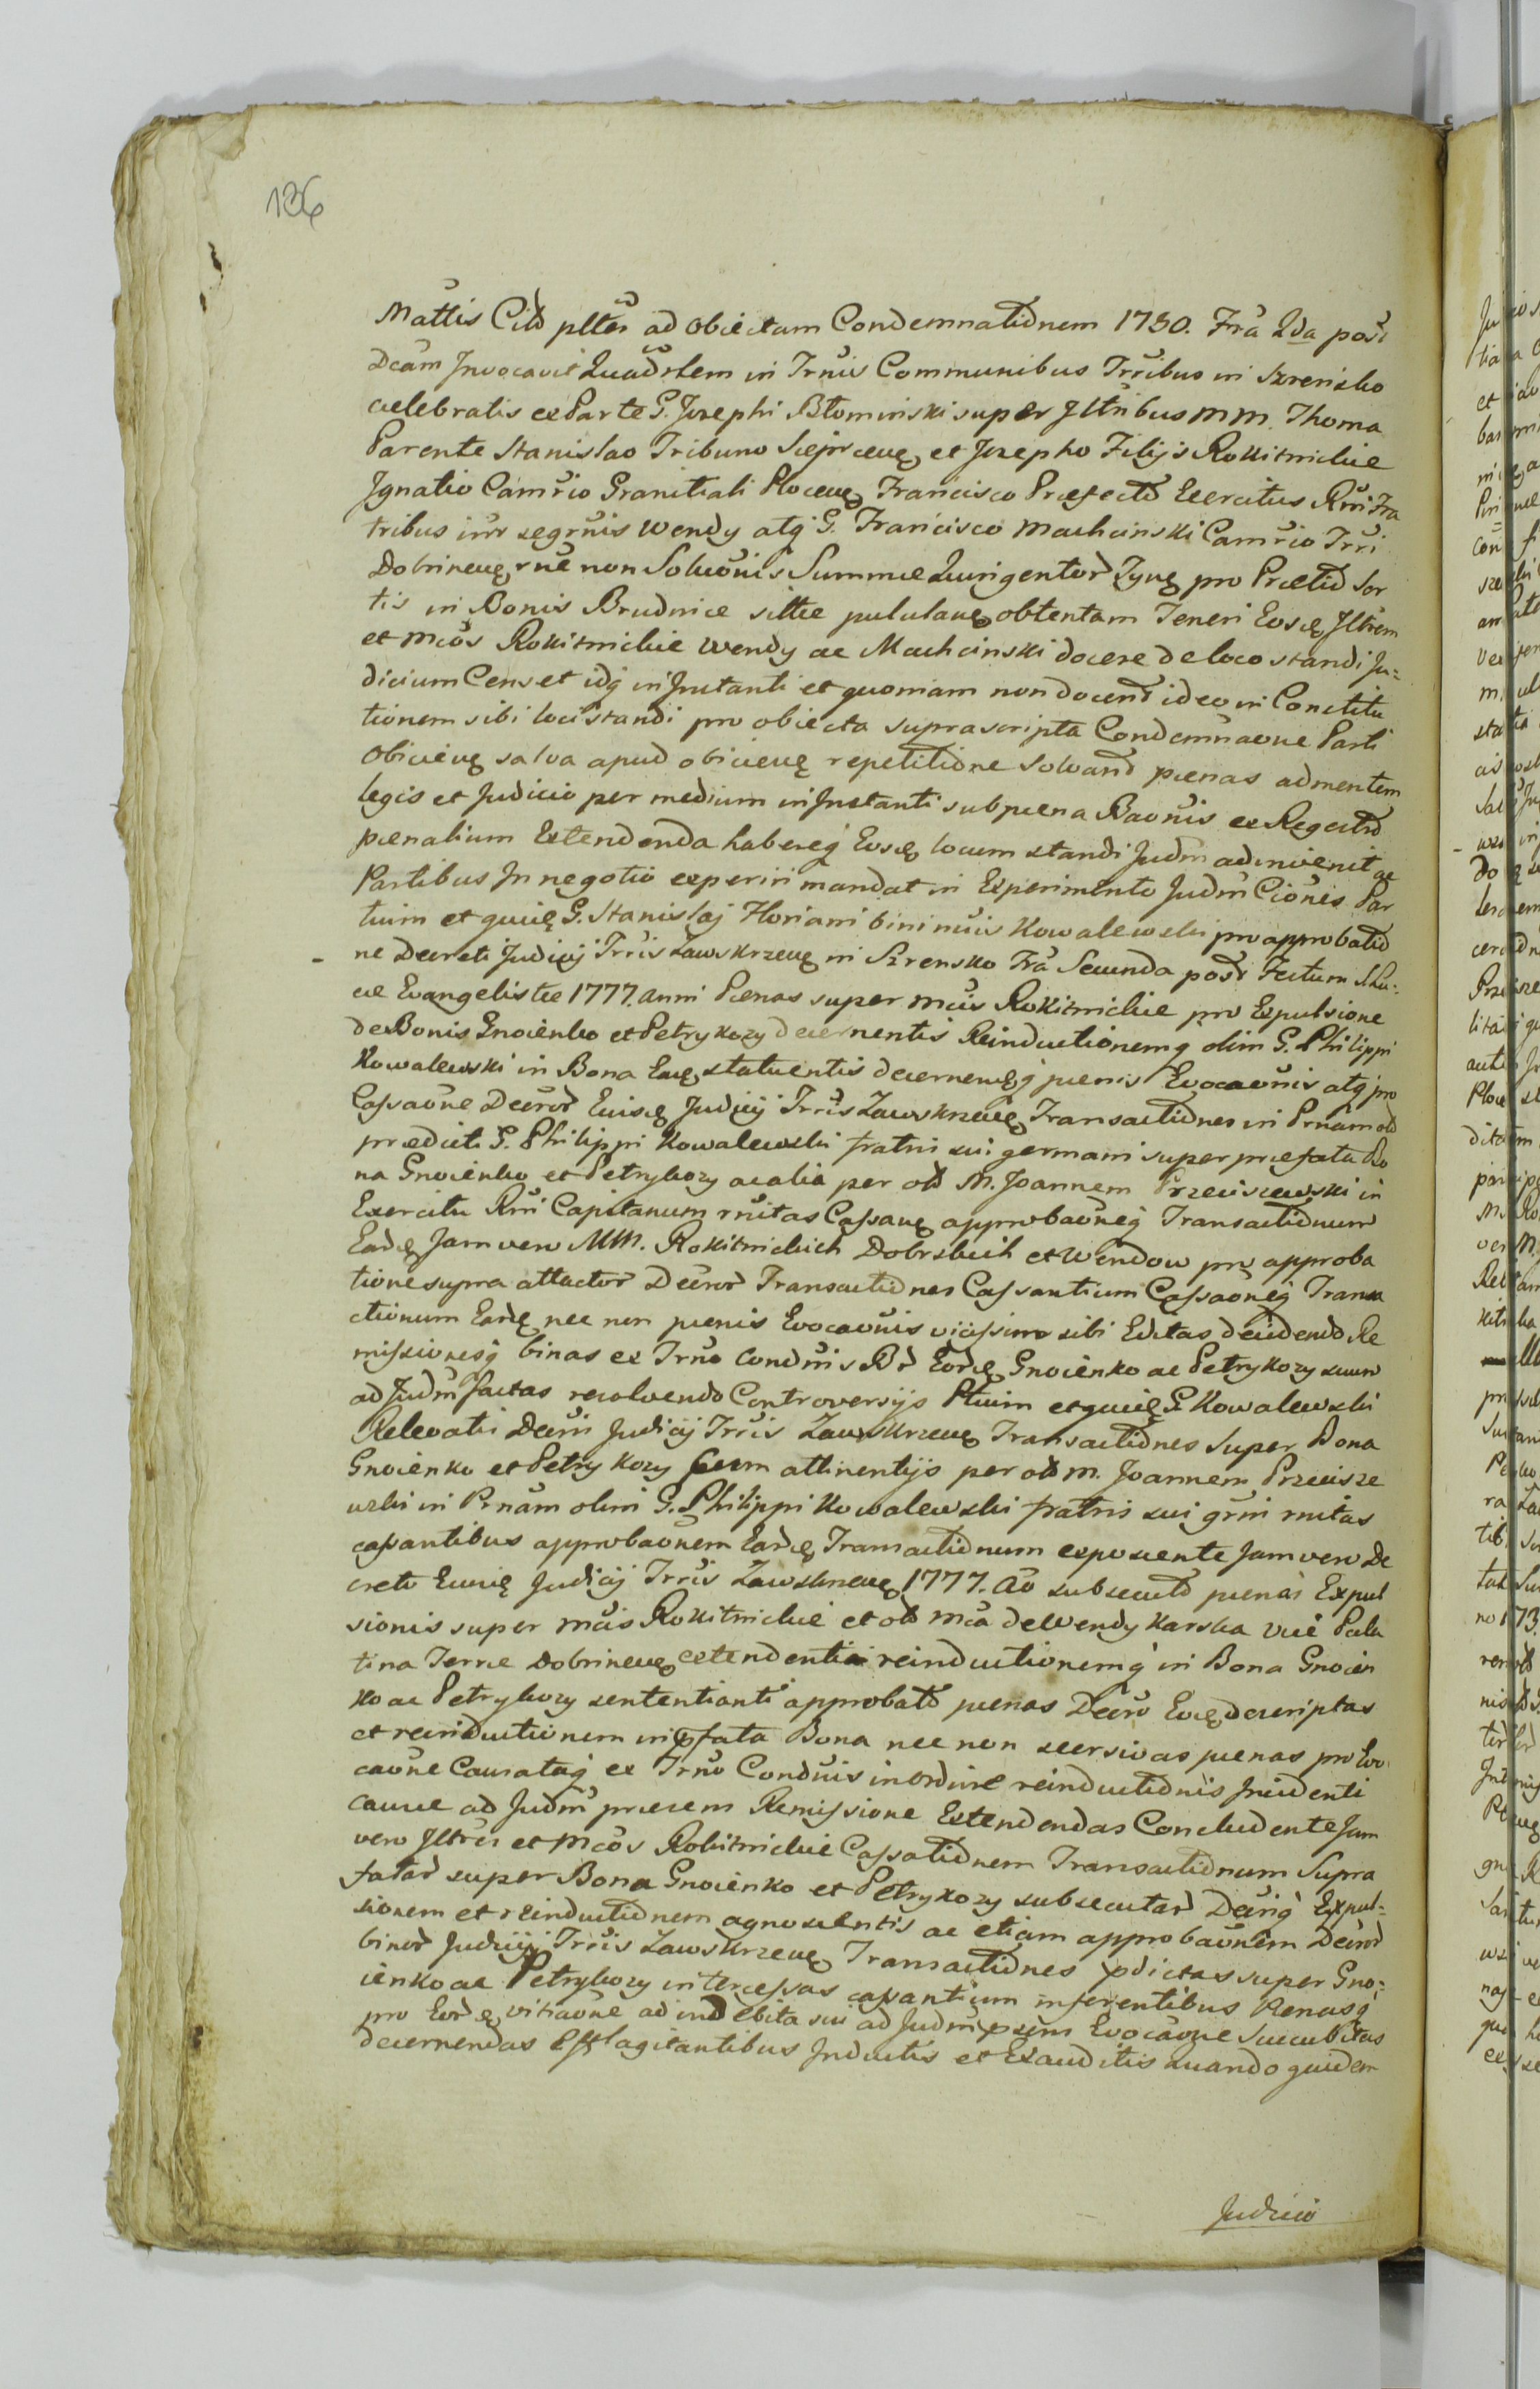 136
Mattis Citõ pltẽr ad obiectam Condemnationem 1780. Frã 2da post
Dcãm Invocavit Quadrlem in Trnis Communibus Trribus in Szrensko
celebratis ex Parte G. Josephi Błominski super Iltribus MM. Thoma
Parente Stanislao Tribuno Sieprceñ et Josepho Filijs Rokitnickie
Ignatio Camrio Granitiali Plocen Francisco Praefecto Exercitus Rni Fra
tribus inr segrnis Wendy atq G. Francisco Machcinski Camrio Trri
Dobrinen rne non Soluõnis Summae Quingentor Zyn pro Praetio Sor
tis in Bonis Brudnice sittae pululan obtentam Teneri Eosq Iltrem
et Mcos Rokitnickie Wendy ac Machcinski docere de loco standi Ju=
dicium Censet idq in Instanti et quoniam non docent ideo in Constitu
tionem sibi loci standi pro obiecta suprascripta Condemnaone Parti
Obicien salva apud obicien repetitione Solvand paenas ad mentem
legis et Judicio per medium in Instanti sub paena Baonis ex Regestro
paenalium Extendenda habereq Eosq locum standi Judm adinvenit ac
Partibus In negotio experiri mandat in Experimento Judm Cionis Par
tium et quiq G. Stanislaj Floriani bini nuis Kowalewski pro approbatio
ne Decreti Judicij Trris Zawskrzen in Szrensko Fra Secunda post Festum S. Lu=
cae Evangelistae 1777. anni Paenas super Mcis Rokitnickie pro Expulsione
de Bonis Gnoienko et Petrykozy decernentis Reinductionemq olim G. Philippi
Kowalewski in Bona Eaq statuentis decernenq paenis Evocaonis atq pro
Cassaone Decror Eiusq Judicij Trris Zawskrzen Transactiones in Prnam olim
praedicti G. Philippi Kowalewski fratris sui germani super praefata Bo
na Gnoienko et Petrykozy ac alia per olim M. Joannem Przeciszewski in
Exercitu Rni Capitanum rnitas Cassan approbaoneq Transactionum
Earq Jam vero MM. Rokitnickich Dobrskich et Wendow pro approba
tione supra attactor Decror Transactiones Cassantium Cassaoneq Transa
ctionum Earq nec non paenis Evocaonis vicissim sibi Editas decidendo Re
missionesq binas ex Trno Condnis Br Eorq Gnoienko ac Petrykozy suum
ad Judm factas resolvendo Controversijs Ptium et quiq G. Kowalewski
Relevatis Decni Judicij Trris Zawskrzen Transactiones Super Bona
Gnoienko et Petrykozy Cum attinentijs per olim M. Joannem Przecisze
wski in Prnam olim G. Philippi Kowalewski fratris sui grni rnitas
cassantibus approbaonem Earq Transactionum exposcente Jam vero De
creto Eiusq Judicij Trris Zawskrzen 1777. Ao subsecuto paenas Expul
sionis super Mcis Rokitnickie et olim Mca de Wendy Karska Vice Pala
tina Terrae Dobrinen extendentia reinductionemq in Bona Gnoien
ko ac Petrykozy sententianti approbato paenas Decro Eoq descriptas
et reinductionem in pfata Bona nec non seersivas paenas pro Evo
caone Causataq ex Trno Condnis in ordine reinductionis Incidenti
causae ad Judm praesens Remissione Extendendas Concludente Jam
vero Iltres et Mcos Rokitnickie Cassationem Transactionum Supra
fatar super Bona Gnoienko et Petrykozy subsecutar Decriq Expul=
sionem et reinductionem agnoscentis ac etiam approbaonem Decror
binor Judicij Trris Zawskrzen Transactiones pdictas super Gno=
ienko ac Petrykozy intercessas cassantium inferentibus Paenasq
pro Eorq vitiaone ad indebita sui ad Judm psens Evocaone Succubitas
decernendas Efflagitantibus Inductis et Exauditis Quandoquidem
Judicio